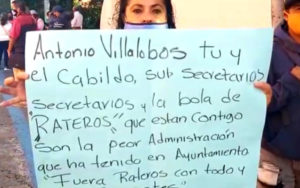 Antonio Villalobos tu y
el Cabildo, sub Secretarios
Secretarios y la bola de
"RATEROS" que estan contigo
son la peor Administración
que ha tenido en Ayuntamiento
"Fuera Rateros con todo y